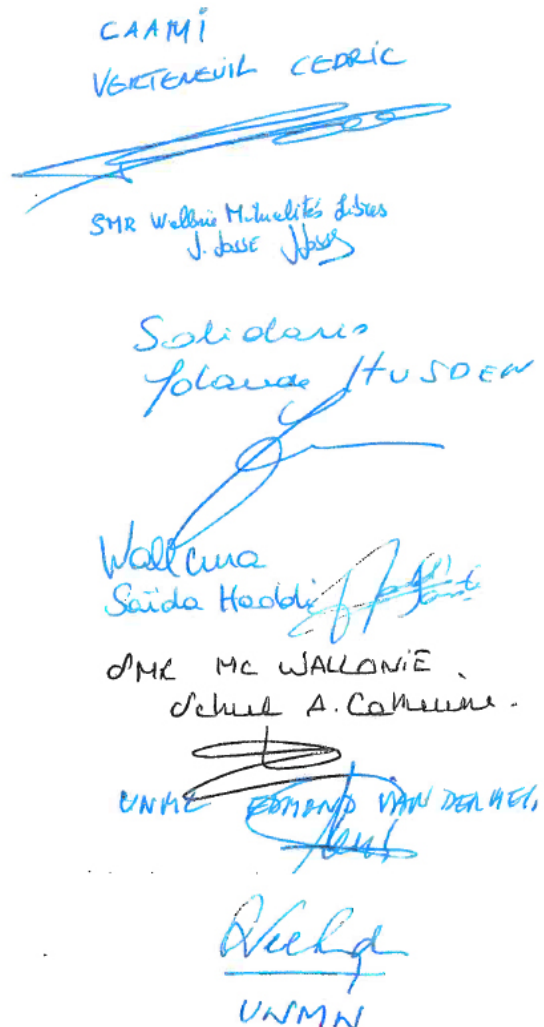 CAAMI
VERTENEUIL CEDRIC
SMR Wallonie Mutualités Libres
J. Josse
Solidaris
Yolande HUSDEN
Wallcura
Saïda Haddi
SMR MC WALLONIE
A. Catherine.
UNML EDMOND VAN DER
UNMN